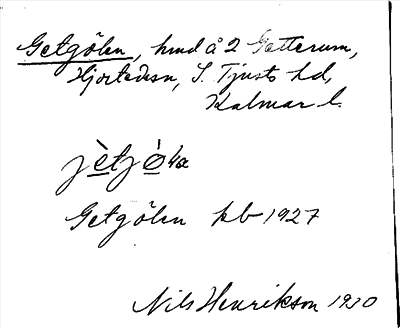 Getgölen, hmd å 2 Gotterum,
Hjorteds sn, S. Tjusts hd,
Kalmar l.
jètjö̀ɫɑ
Getgölen kb 1927
Nils Henrikson 1930